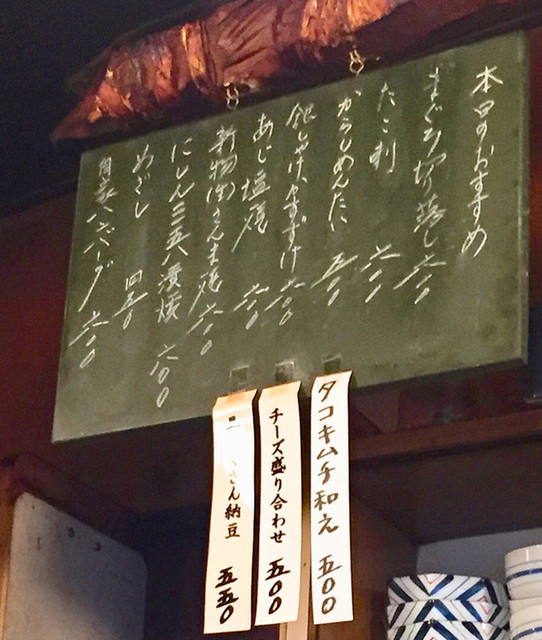 本日のおすすめ
まぐろ切り落し 六〇〇
たこ刺 六〇〇
からしめんたい 五〇〇
銀しゃけかすづけ 六〇〇
あじ塩焼 六〇〇
新物(生)さんま焼 六〇〇
にしん三五八漬焼 六〇〇
めざし 四五〇
自家ハンバーグ 六〇〇
タコキムチ和え 五〇〇
チーズ盛り合わせ 五〇〇
さん納豆 五五〇